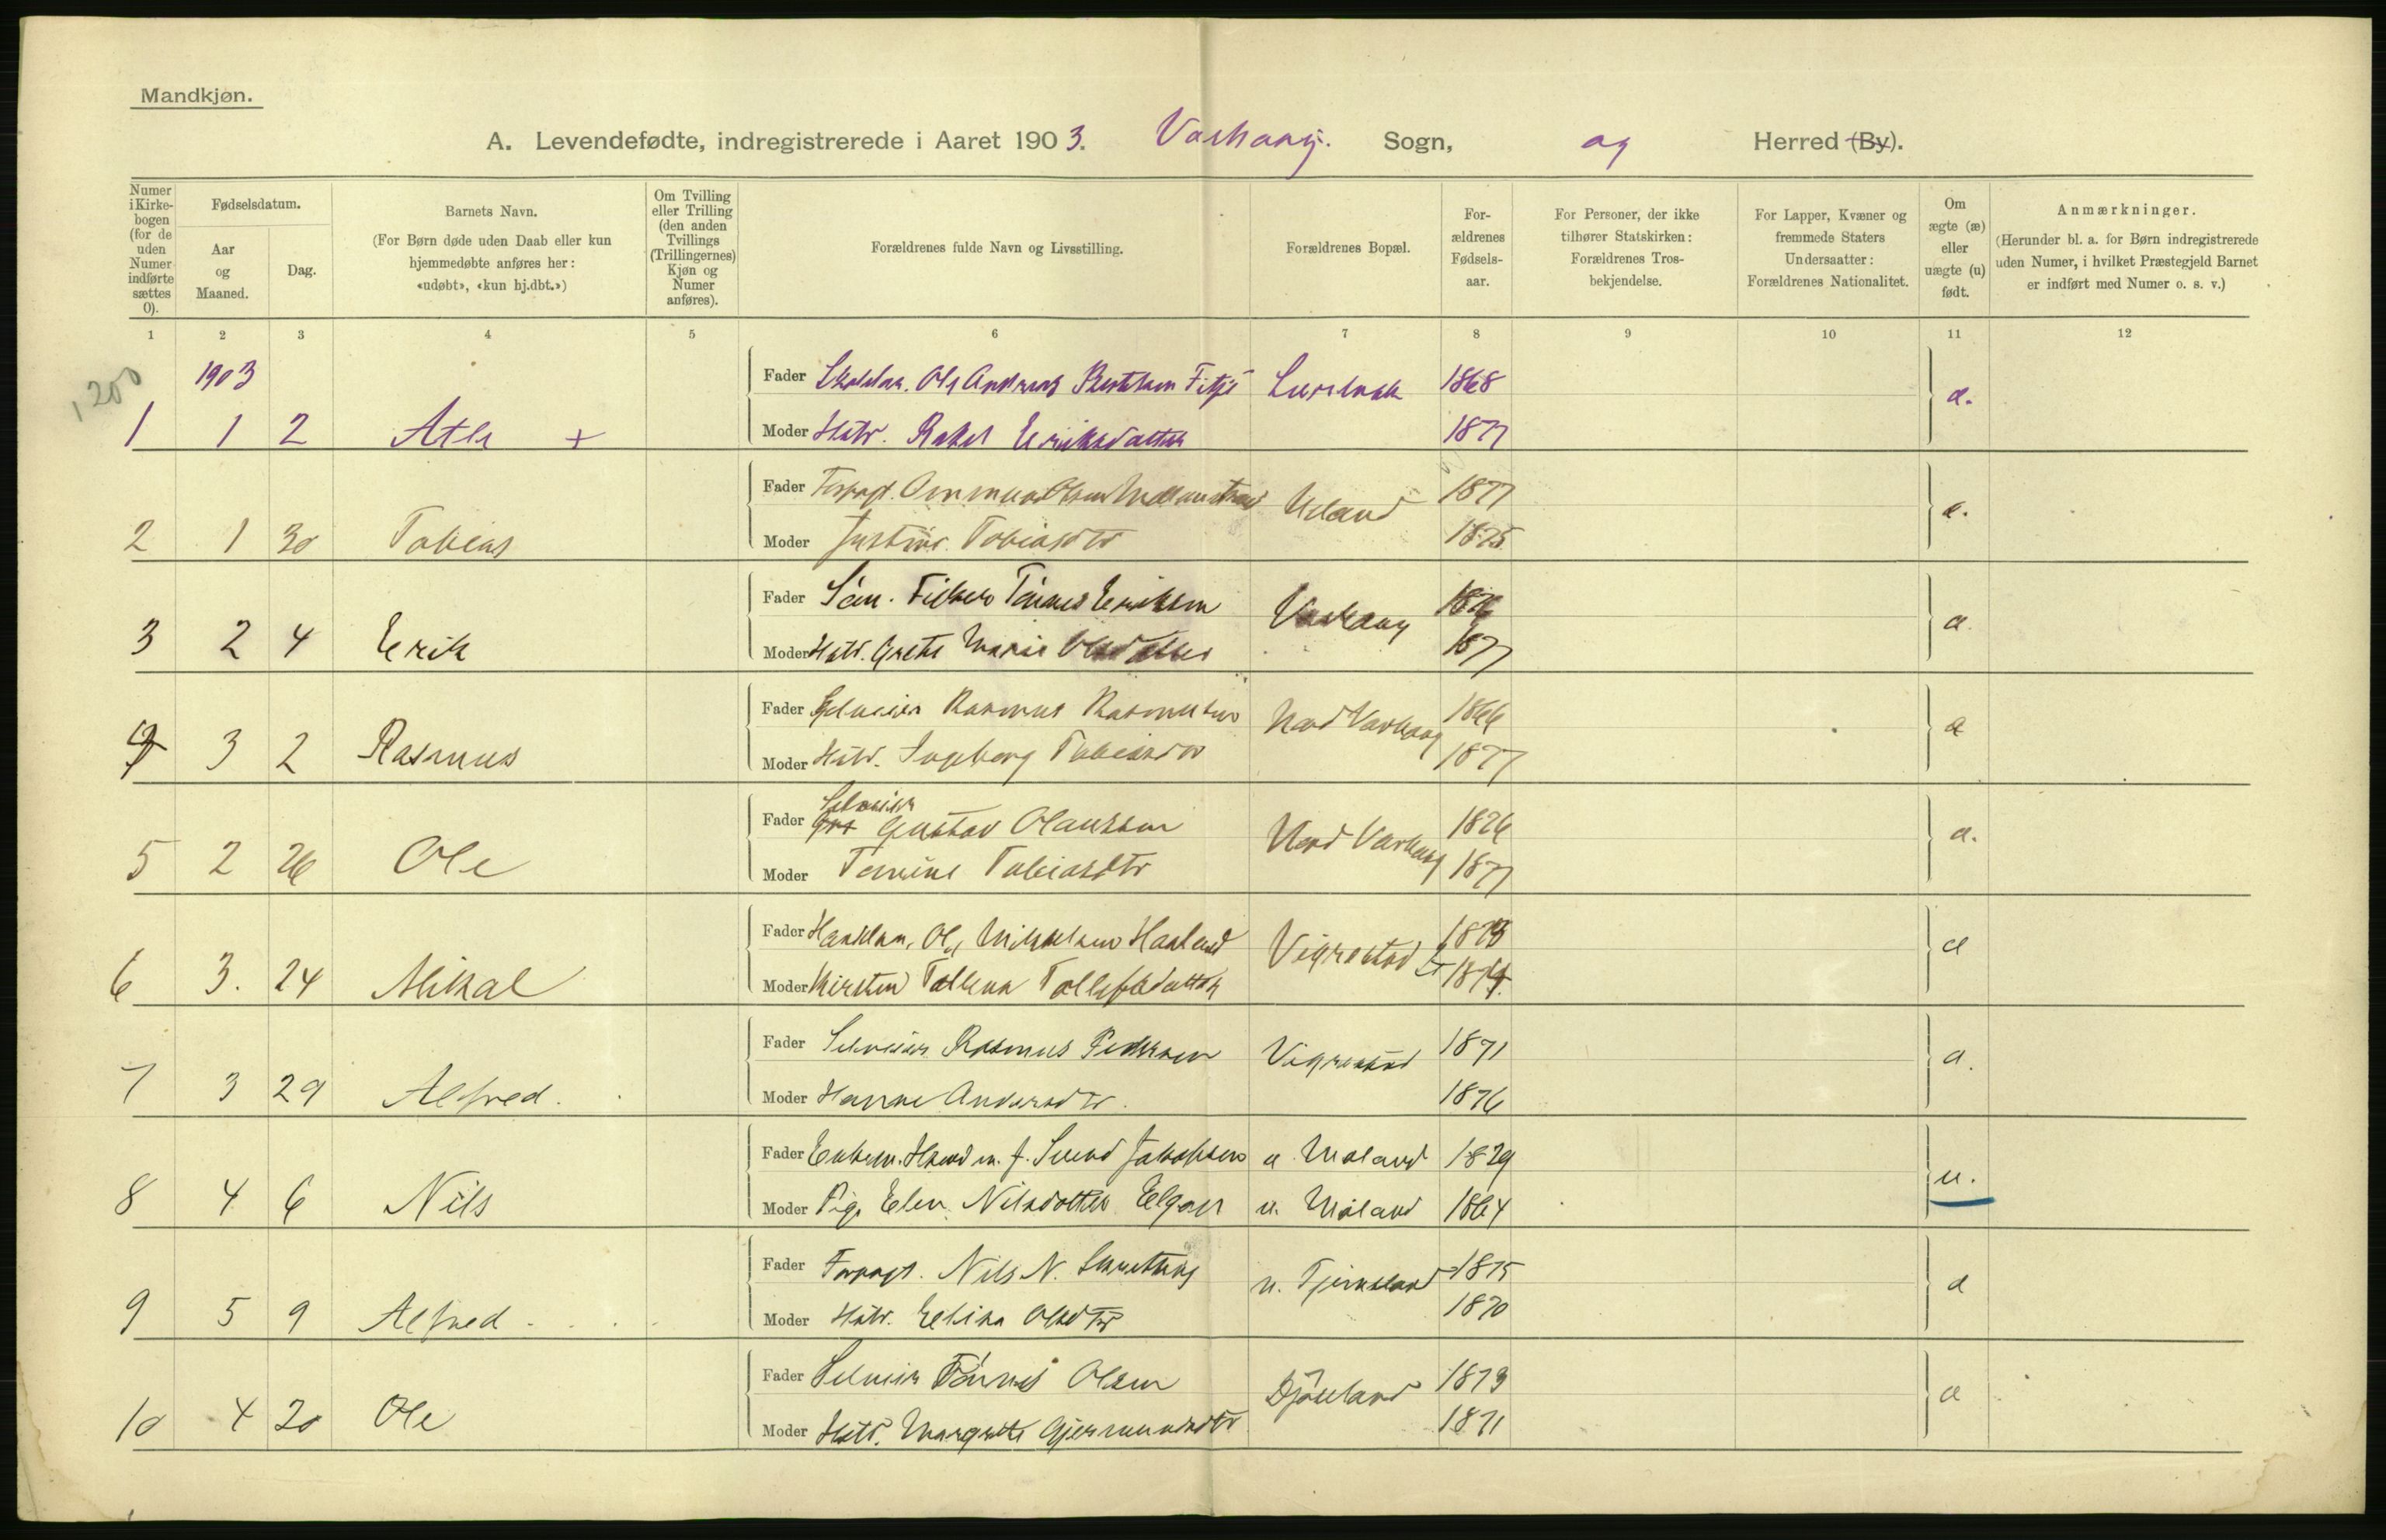 Mandkjøn.
A. Levendefødte, indregistrerede i Aaret 1903. Varhaug. Sogn, og Herred (By).
Numer i Kirkebogen (for de uden Numer indførte sættes 0).
Fødselsdatum.
Aar og Maaned.
Dag.
Barnets Navn.
(For Børn døde uden Daab eller kun hjemmedøbte anføres her: «udøbt», «kun hj.dbt.»)
Om Tvilling eller Trilling (den anden Tvillings (Trillingernes) Kjøn og Numer anføres).
Forældrenes fulde Navn og Livsstilling.
Forældrenes Bopæl.
For-ældrenes Fødsels-aar.
For Personer, der ikke tilhører Statskirken: Forældrenes Tros-bekjendelse.
For Lapper, Kvæner og fremmede Staters Undersaatter: Forældrenes Nationalitet.
Om ægte (æ) eller uægte (u) født.
Anmærkninger.
(Herunder bl. a. for Børn indregistrerede uden Numer, i hvilket Præstegjeld Barnet er indført med Numer o. s. v.)
1 2 3 4 5 6 7 8 9 10 11 12
1903
Fader Ole Andreas Bertelsen Fitje 1868
1 1 2 Atle + Moder Hstr. Rakel Eriksdatter 1877 æ.
Fader Forpagt. Ommund Olsen Ueland 1877
2 1 30 Tobias Moder Justine Tobiasdtr 1875 æ.
Fader Tønnes Eriksen Varhaug
3 2 4 Erik Moder Hstr. Grete Marie Olsdatter 1877 æ
Fader Selveier Rasmus Rasmussen Nord Varhaug 1866
4 3 2 Rasmus Moder Hstr. Ingeborg Tobiasdtr 1877 æ
Selveier
Fader Gustav Olaussen Nord Varhaug 1876
5 2 26 Ole Moder Tomine Tobiasdtr 1877 æ.
Fader Ole Mikkelsen Haaland Vigrestad St 1873
6 3. 24 Mikal Moder Kirsten Tollefsdatter 1874 æ
Fader Selveier Rasmus Pedersen Vigrestad 1871
7 3 29 Alfred. Moder Hanne Andersdtr. 1876 æ.
Fader Enkem. Svend Jakobsen 1829
8 4 6 Nils Moder Pige Elen Nilsdatter 1864 u.
Fader Forpagt. Nils N. 1875
9 5 9 Alfred Moder Hstr. Elisa Olsdtr 1870 æ
Fader Selveier Tønnes Olsen 1873
10 4 20 Ole Moder Hstr. Margrete Gjermundsdtr 1871 æ